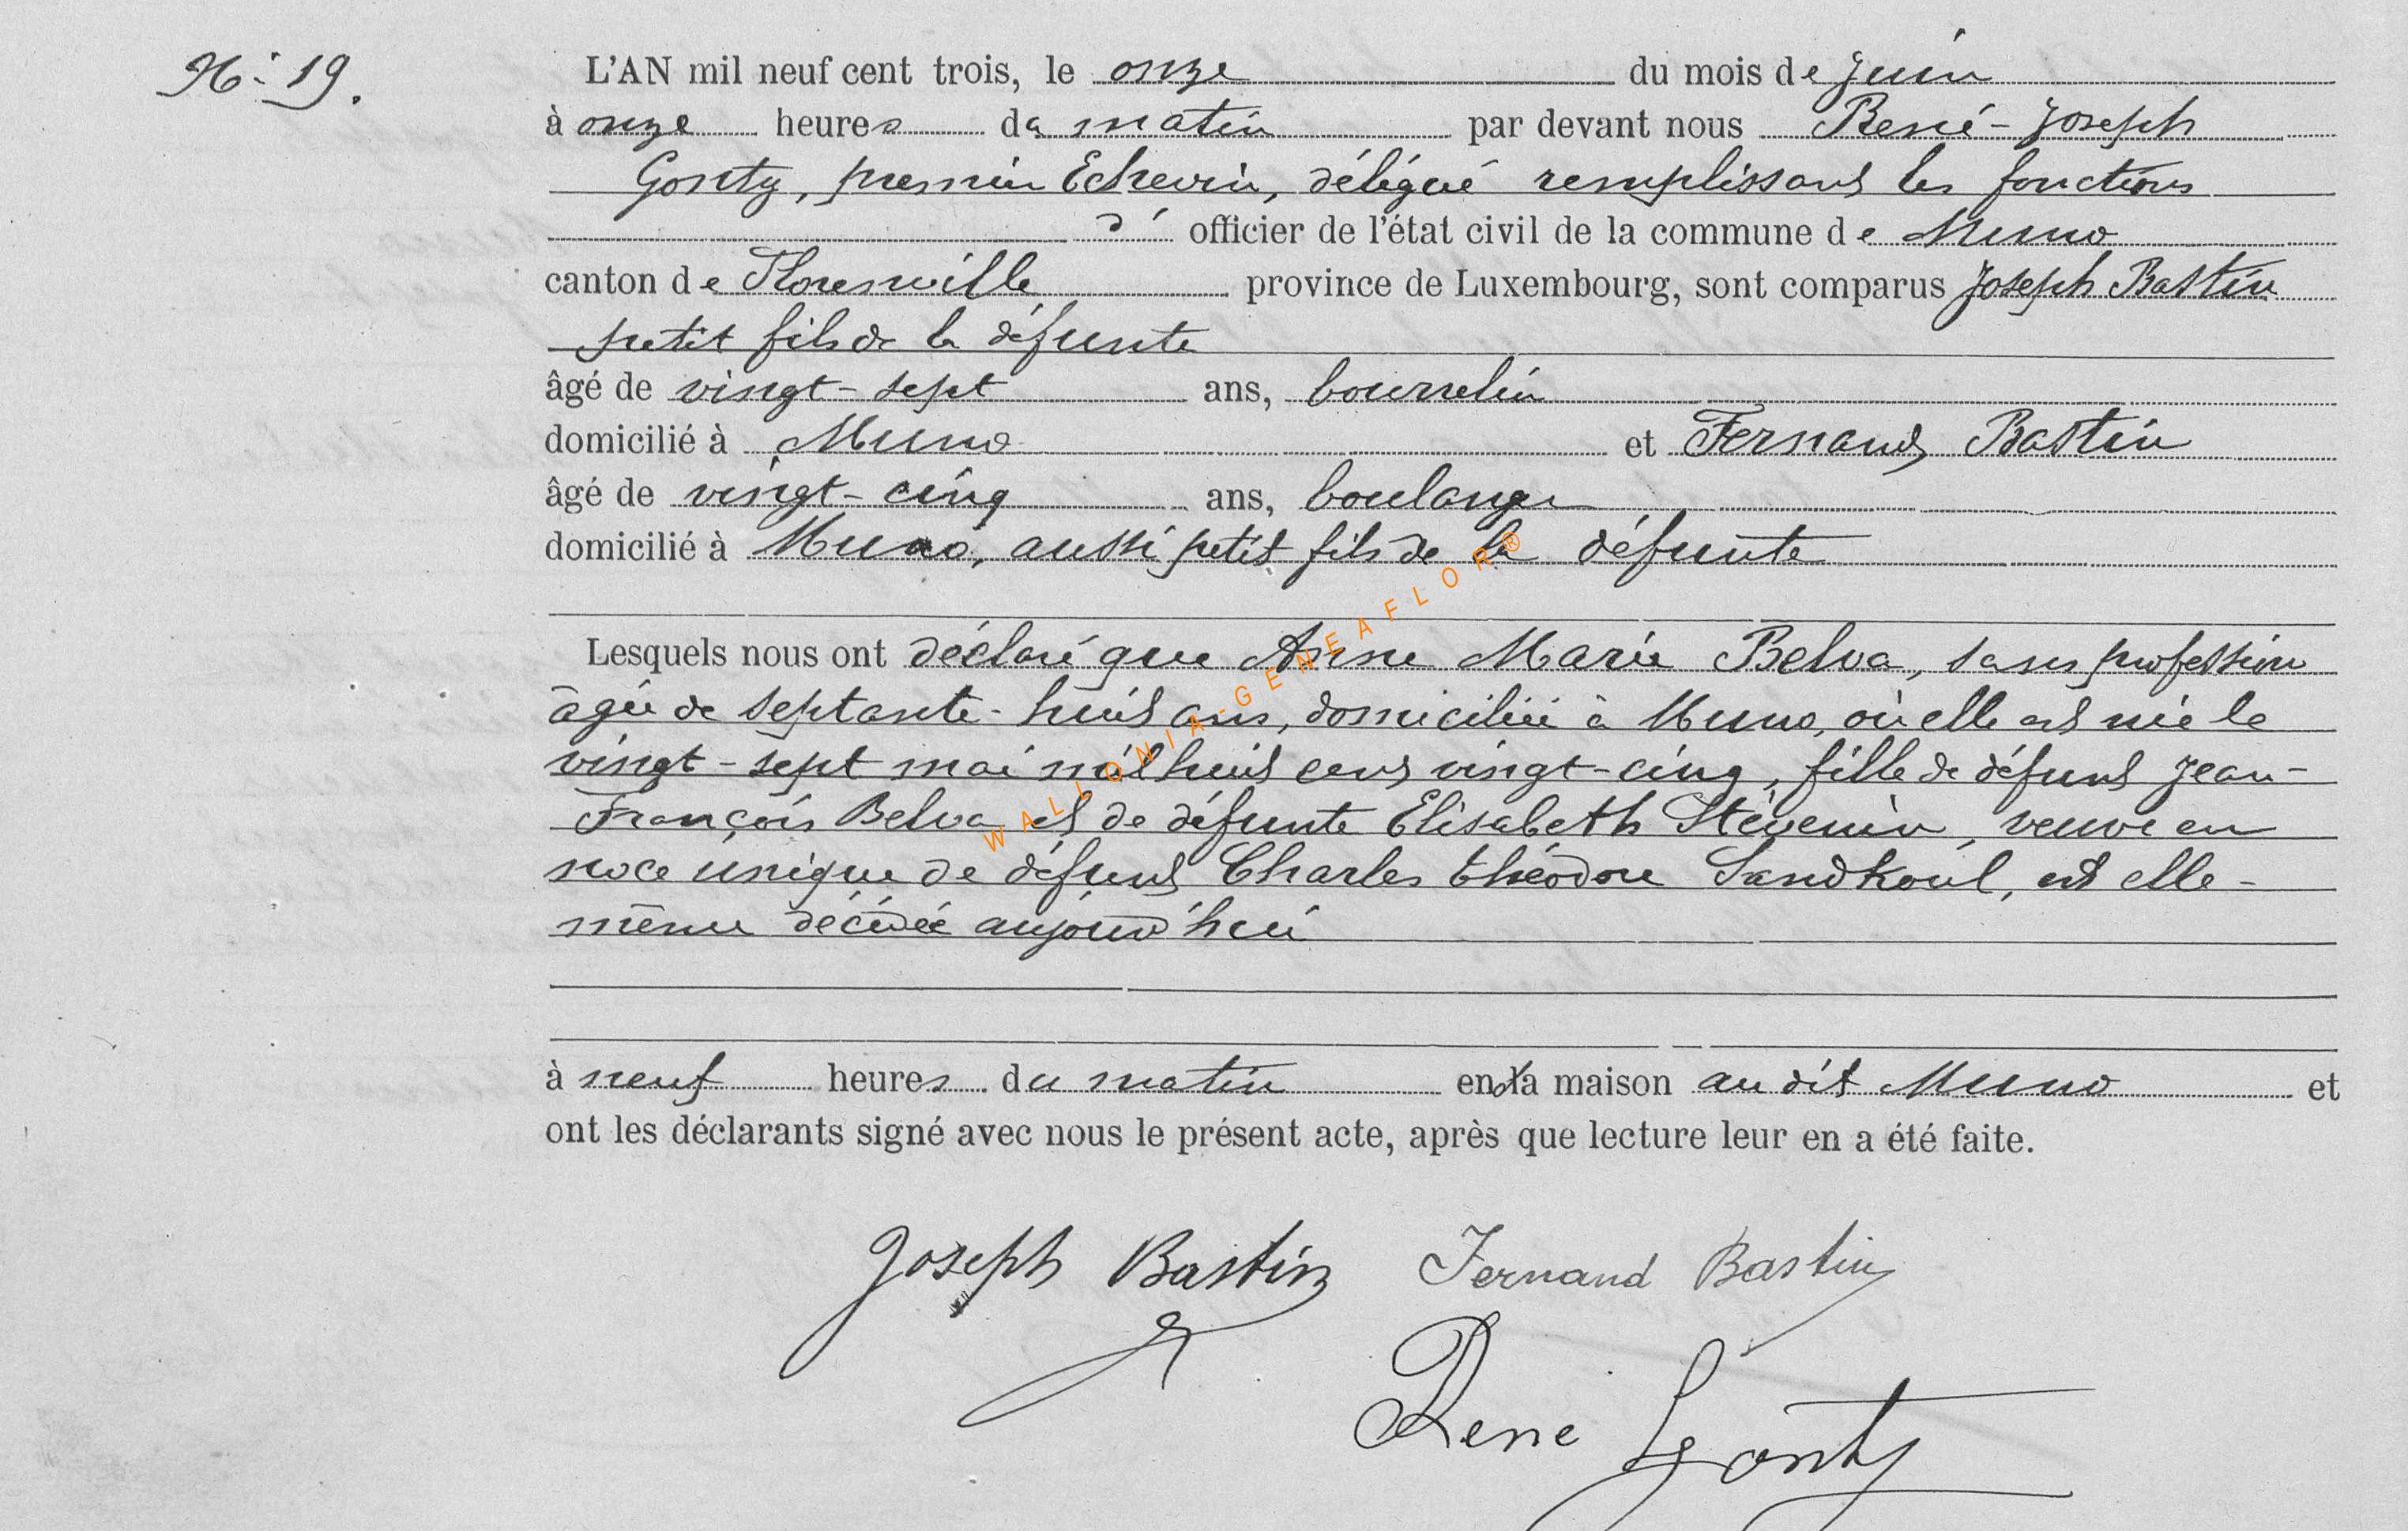 N° 19.
L'AN mil neuf cent trois, le onze du mois de Juin
à onze heures du matin par devant nous René-Joseph
Gonty, premier Echevin, délégué remplissant les fonctions
d' officier de l'état civil de la commune de Muno
canton de Florenville province de Luxembourg, sont comparus Joseph Bastin
petit fils de la défunte
âgé de vingt-sept ans, bourrelier
domicilié à Muno et Fernand Bastin
âgé de vingt-cinq ans, boulanger
domicilié à Muno, aussi petit fils de la défunte
Lesquels nous ont déclaré que Anne Marie Belva, sans profession
âgée de septante-huit ans, domiciliée à Muno, où elle est née le
vingt-sept mai mil huit cent vingt-cinq, fille de défunt Jean-
François Belva et de défunte Elisabeth Stévenin, veuve en
noce unique de défunt Charles théodore Sandkoul, est elle-
même décédée aujourd'hui
à neuf heures du matin en sa maison au dit Muno et
ont les déclarants signé avec nous le présent acte, après que lecture leur en a été faite.
Joseph Bastin Fernand Bastin
René Gonty
WALLONIA-GENEAFLOR®